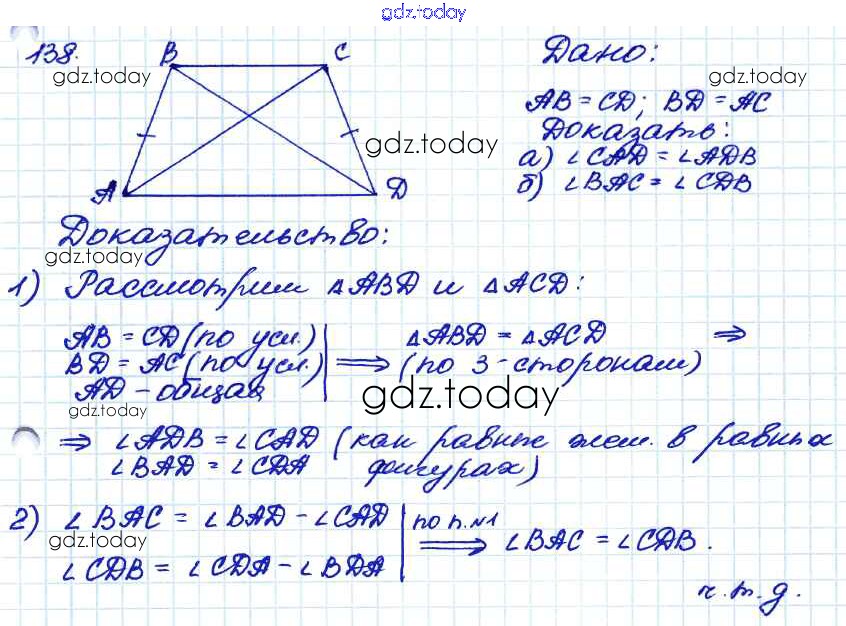 gdz.today
138.
B
C
A
D
gdz.today
gdz.today
gdz.today
Дано:
AB = CD; BD = AC
Доказать:
а) ∠CAD = ∠ADB
б) ∠BAC = ∠CDB
Доказательство:
gdz.today
1) Рассмотрим ΔABD и ΔACD:
AB = CD (по усл.)
BD = AC (по усл.)
AD - общая
⟹ ΔABD = ΔACD ⇒
(по 3-сторонам)
gdz.today
gdz.today
⇒ ∠ADB = ∠CAD (как равные элем. в равных
∠BAD = ∠CDA фигурах)
2) ∠BAC = ∠BAD - ∠CAD
gdz.today
∠CDB = ∠CDA - ∠BDA
по п.№1
⟹ ∠BAC = ∠CDB.
gdz.today
ч.т.д.